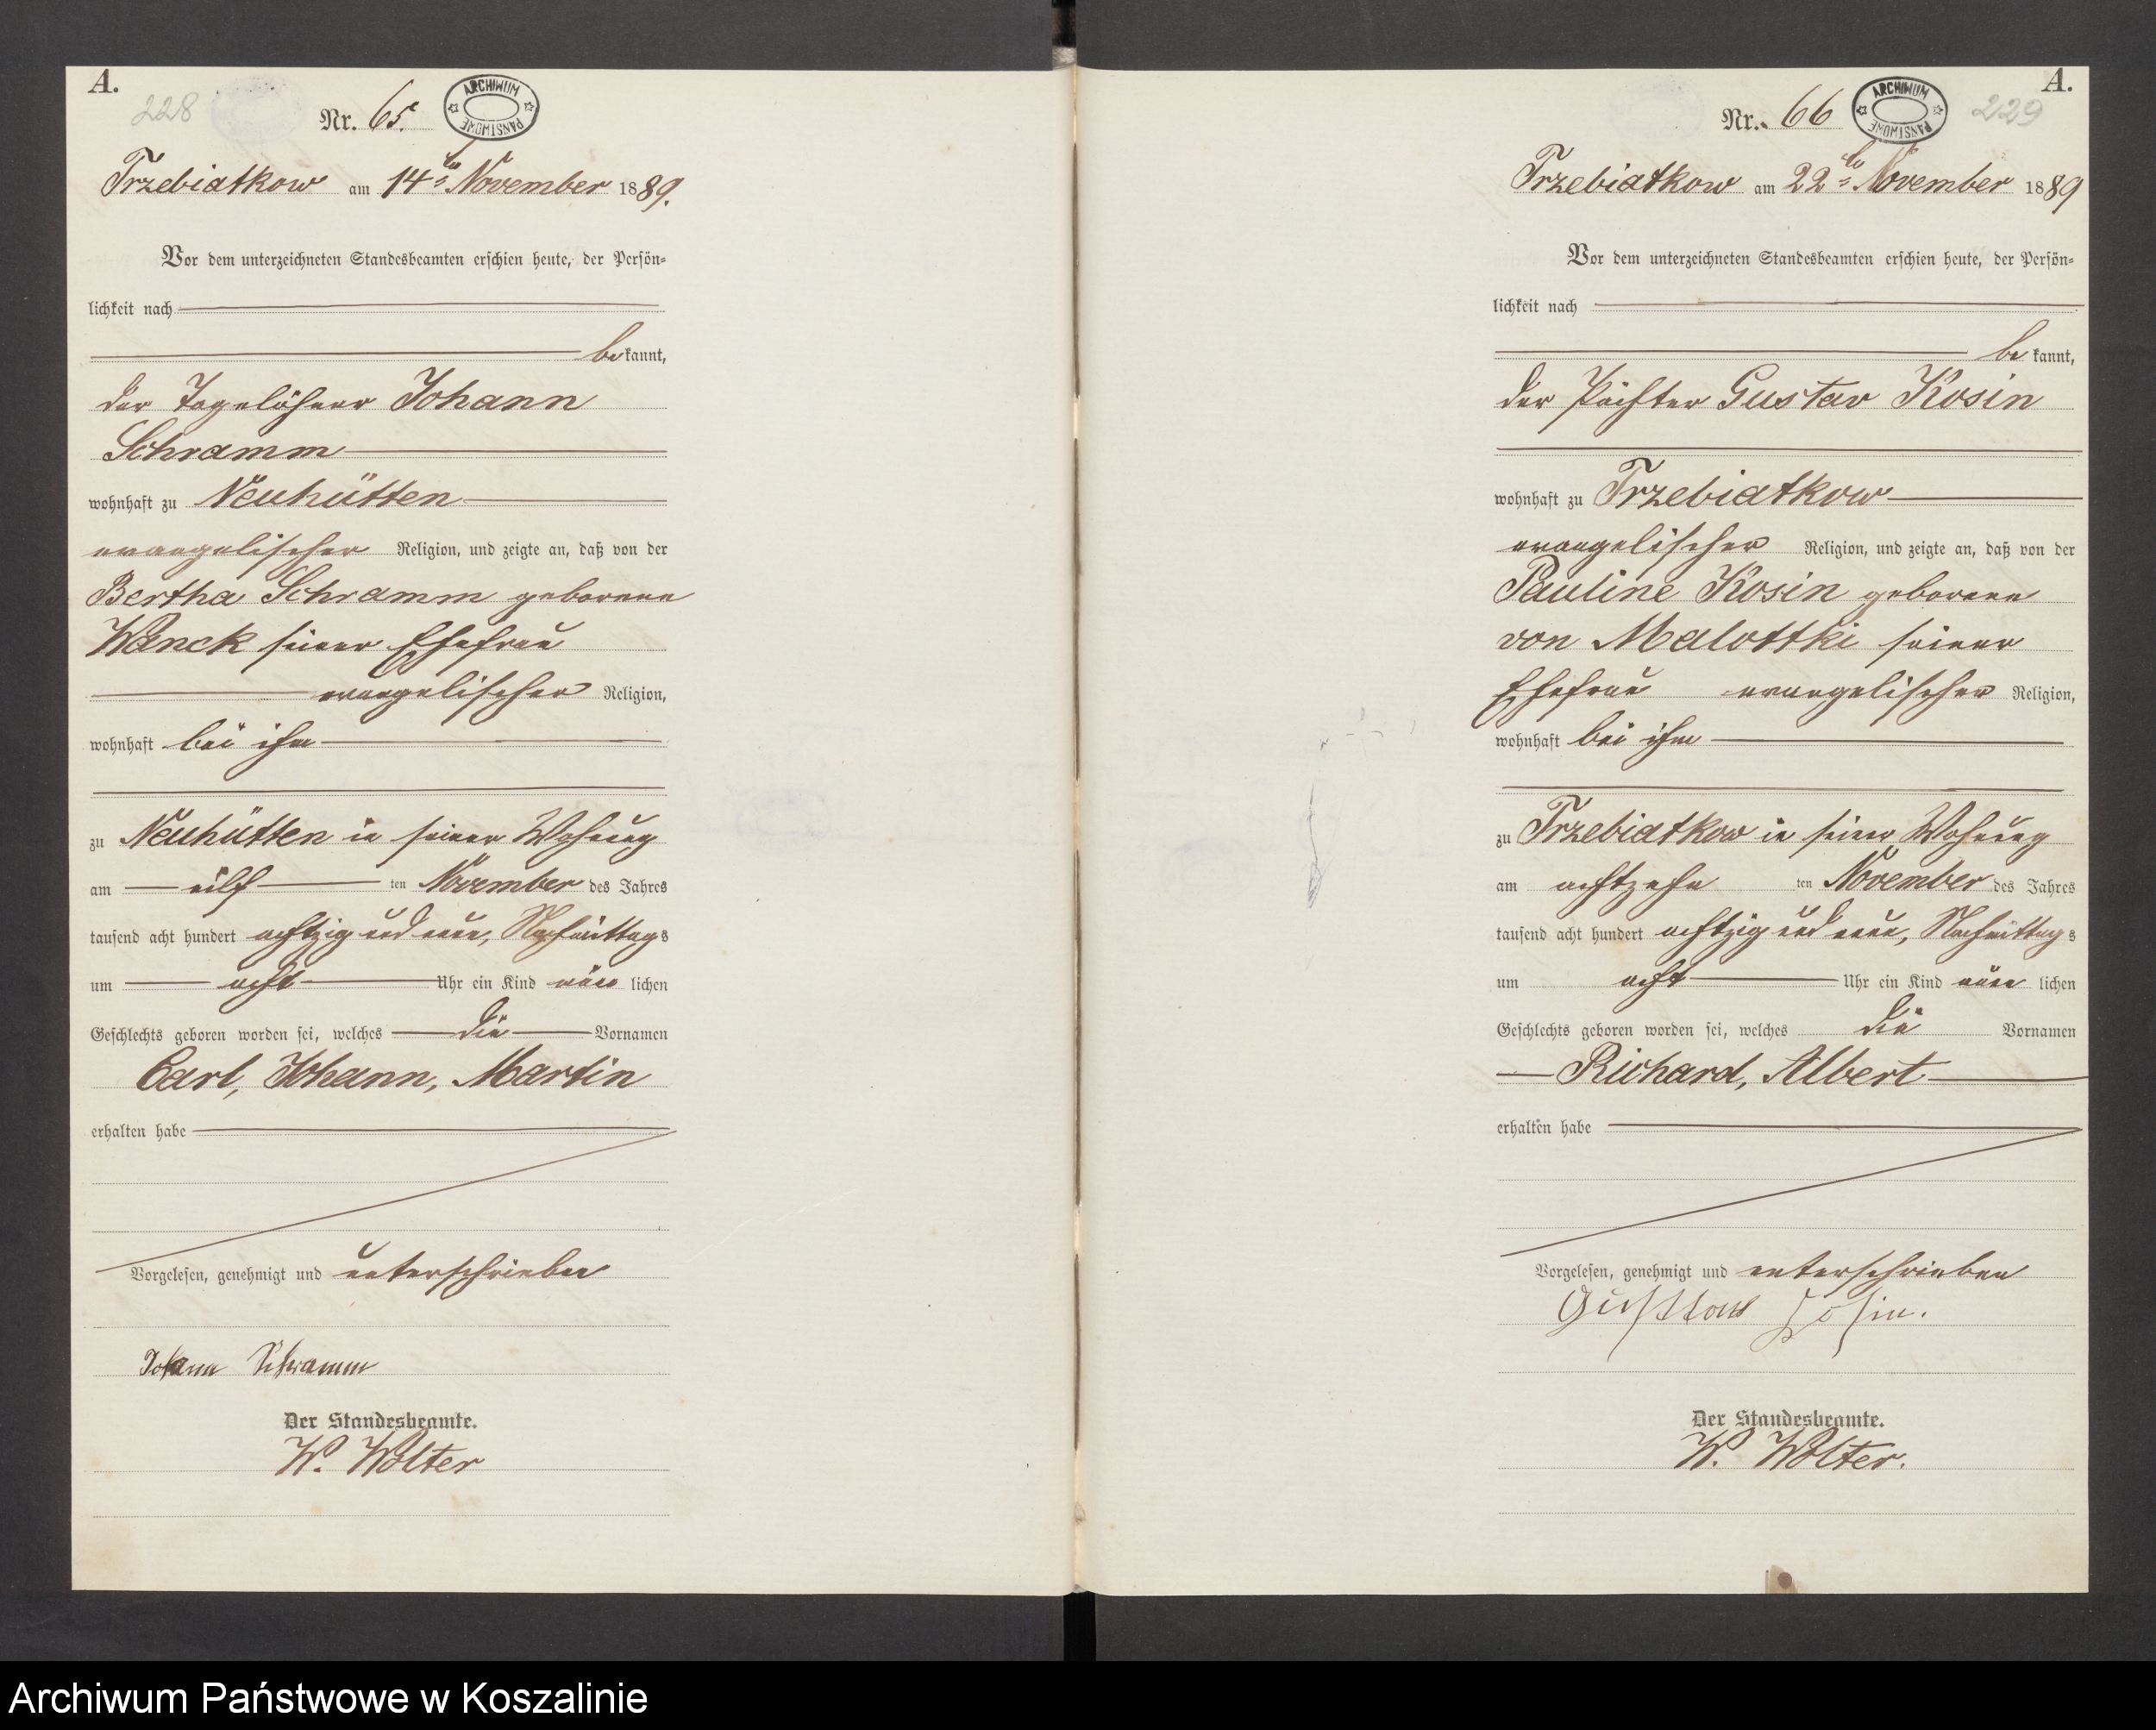 A.
228
Nr. 65.
ARCHIWUM PAŃSTWOWE
Trzebiatkow am 14ten November 1889.
Vor dem unterzeichneten Standesbeamten erschien heute, der Persön-
lichkeit nach
bekannt,
der Tagelöhner Johann
Schramm
wohnhaft zu Neuhütten
evangelischer Religion, und zeigte an, daß von der
Bertha Schramm geborenen
Wenck seiner Ehefrau
evangelischer Religion,
wohnhaft bei ihm
zu Neuhütten in seiner Wohnung
am eilf ten November des Jahres
tausend acht hundert achtzig und neun, Nachmittags
um acht Uhr ein Kind männlichen
Geschlechts geboren worden sei, welches die Vornamen
Carl, Johann, Martin
erhalten habe
Vorgelesen, genehmigt und unterschrieben
Johann Schramm
Der Standesbeamte.
W. Wolter
A.
229
Nr. 66
ARCHIWUM PAŃSTWOWE
Trzebiatkow am 22ten November 1889
Vor dem unterzeichneten Standesbeamten erschien heute, der Persön-
lichkeit nach
bekannt,
der Pächter Gustav Kosin
wohnhaft zu Trzebiatkow
evangelischer Religion, und zeigte an, daß von der
Pauline Kosin geborenen
von Malottki seiner
Ehefrau evangelischer Religion,
wohnhaft bei ihm
zu Trzebiatkow in seiner Wohnung
am achtzehn ten November des Jahres
tausend acht hundert achtzig und neun, Nachmittags
um acht Uhr ein Kind männlichen
Geschlechts geboren worden sei, welches die Vornamen
Richard, Albert
erhalten habe
Vorgelesen, genehmigt und unterschrieben
Gustav Kosin.
Der Standesbeamte.
W. Wolter.
Archiwum Państwowe w Koszalinie